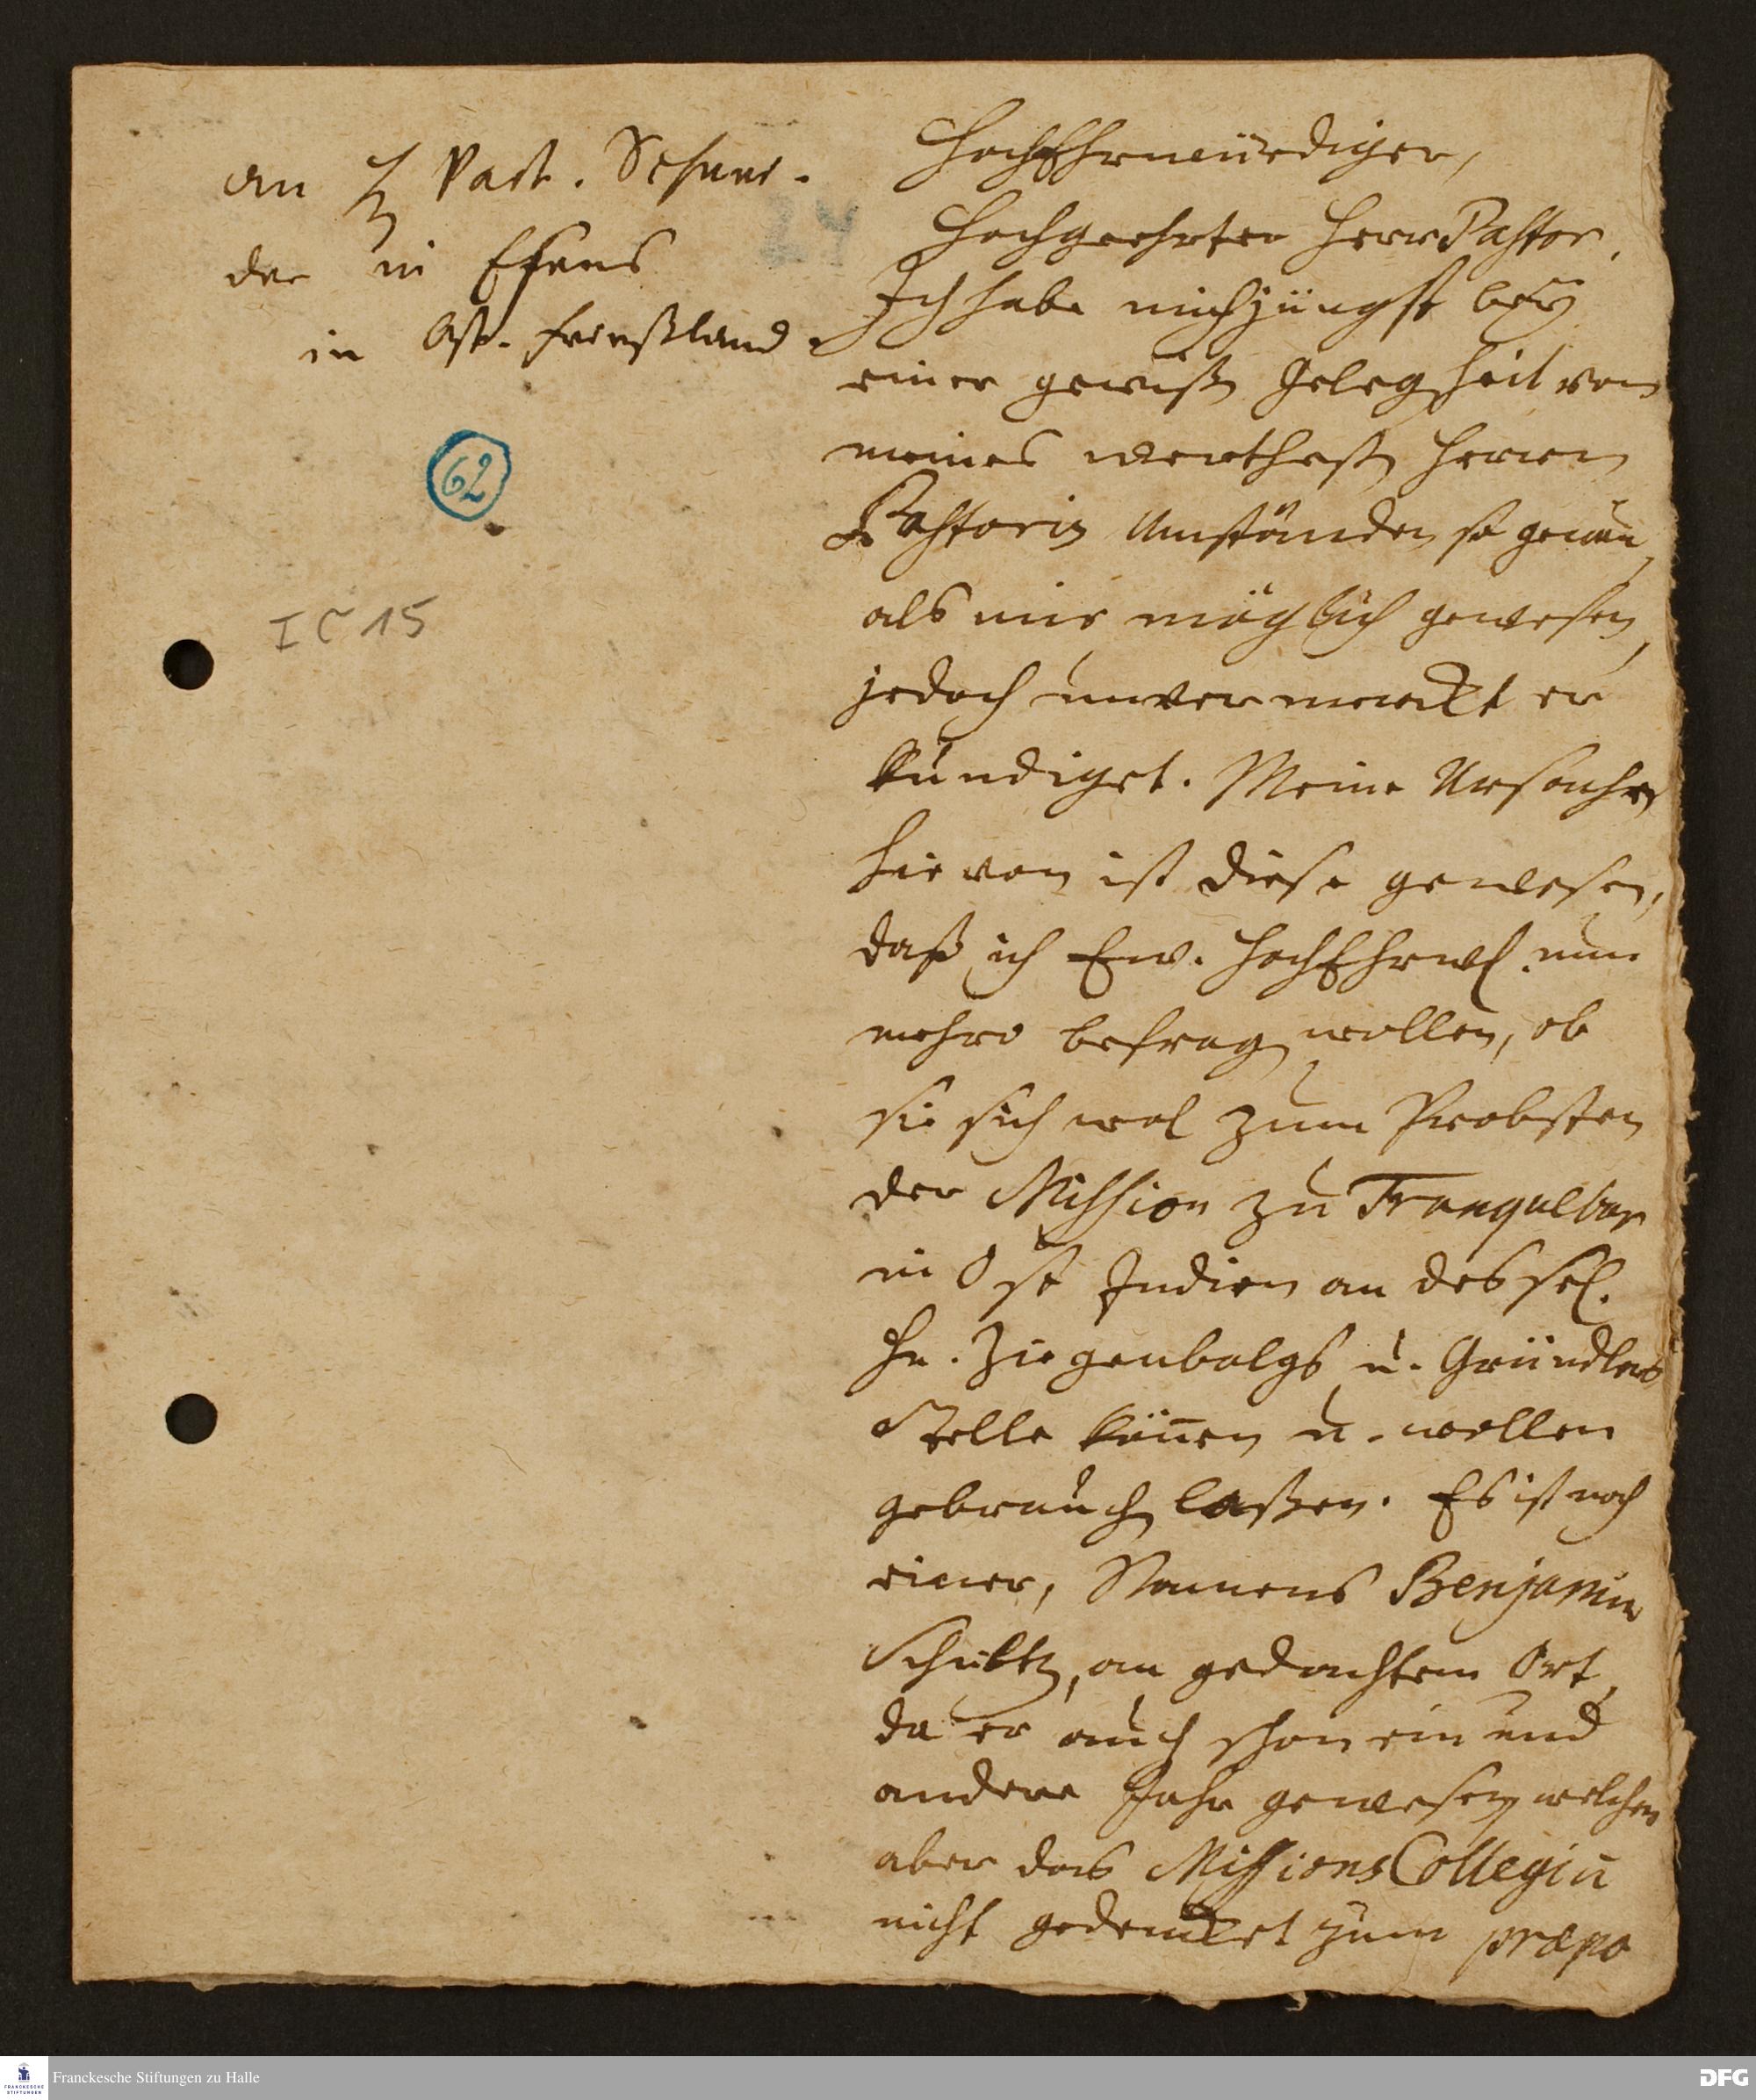 an H. Past. Schnei-
der in Esens
in Ost-Frießland.
24
62
I C 15
HochEhrwürdiger,
Hochgeehrter Herr Pastor,
Ich habe mich jüngst bey
einer gewißen Gelegenheit von
meines werthesten Herren
Pastoris Umständen so genau,
als mir möglich gewesen,
jedoch unvermerckt er
kundiget. Meine Ursache
hiervon ist diese gewesen,
daß ich Ew. HochEhrw. nun
mehro befragen wollen, ob
sie sich wol zum Probsten
der Mission zu Tranquebar
in Ost Indien an des sel.
Hn. Ziegenbalgs u. Gründlers
Stelle können u. wollen
gebrauchen laßen. Es ist noch
einer, Namens Benjamin
Schultz, an gedachtem Ort,
da er auch schon ein und
andere Jahr gewesen, welchen
aber das Missions Collegiū
nicht gedencket zum præpo
Franckesche Stiftungen zu Halle
FRANCKESCHE
STIFTUNGEN
DFG